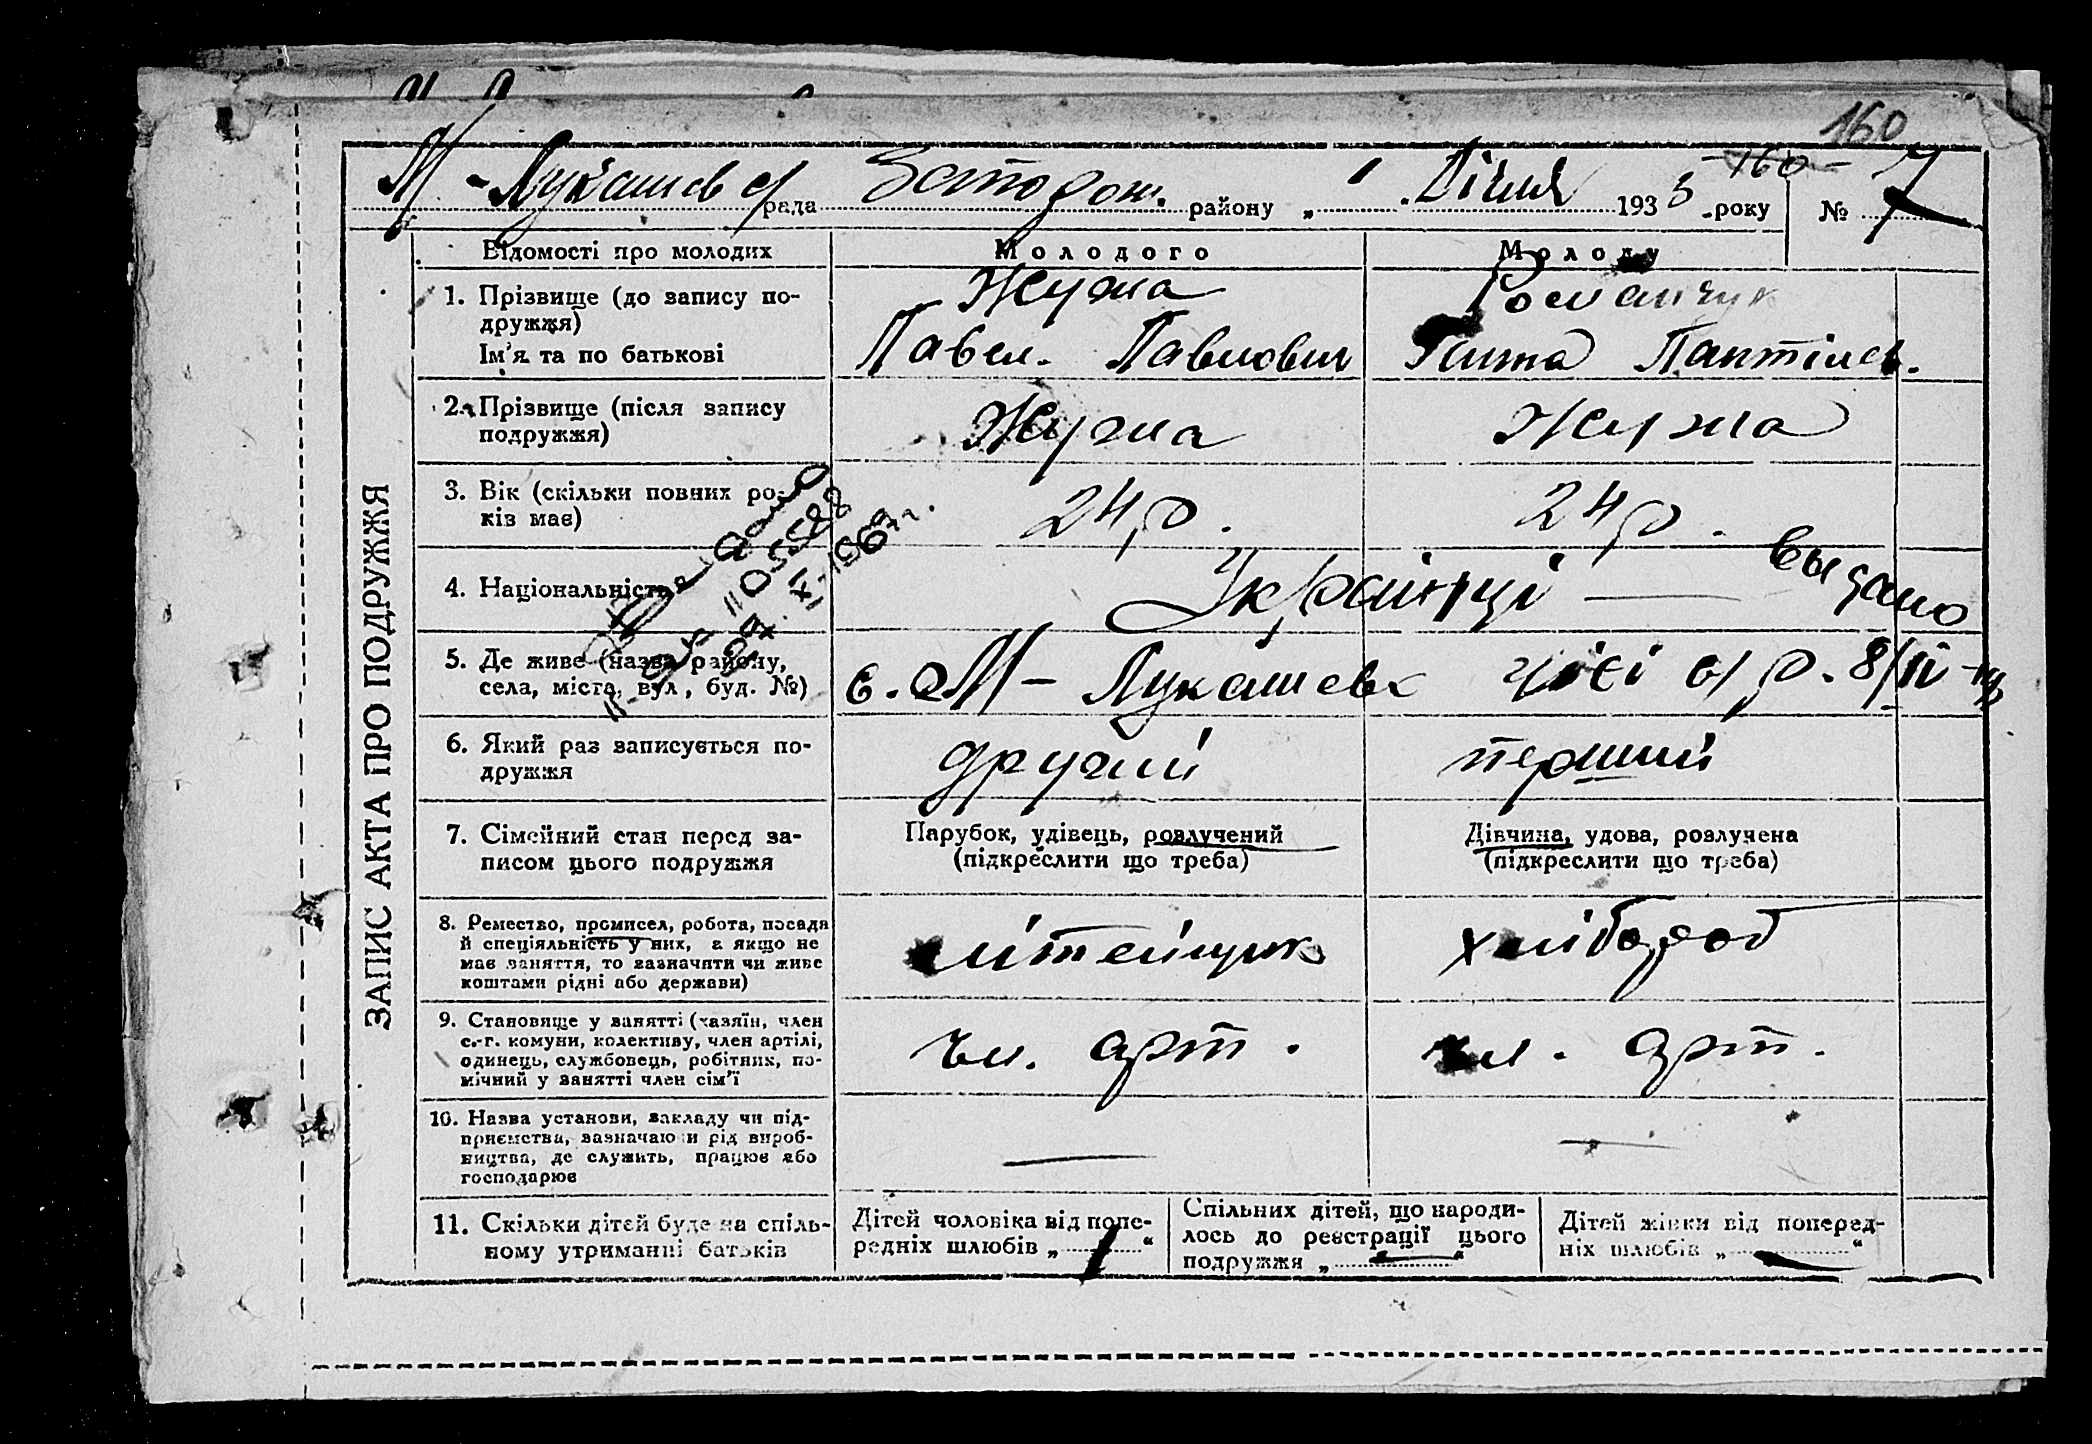 160
-160-
М-Лукашів с/ рада району „ “ Січня 1935 року № 7
ЗАПИС АКТА ПРО ПОДРУЖЖЯ
Відомості про молодих Молодого Молоду
1. Прізвище (до запису по-
дружжя)
Ім'я та по батькові
Жужа
Павел. Павлович
Романчук
Пантілев.
2. Прізвище (після запису
подружжя)
Жужа Жужа
3. Вік (скільки повних ро-
ків має)
24 р. 24 р.
4. Національність
Українці —
выдано
8/IV-
5. Де живе (назва району,
села, міста, вул., буд. №)
с. М-Лукашевк цієї с/р.
6. Який раз записується по-
дружжя
другий перший
7. Сімейний стан перед за-
писом цього подружжя
Парубок, удівець, розлучений
(підкреслити що треба)
Дівчина, удова, розлучена
(підкреслити що треба)
8. Ремество, промисел, робота, посада
й спеціяльність у них, а якщо не
має заняття, то зазначити чи живе
коштами рідні або держави)
хлібороб
9. Становище у занятті (хазяїн, член
с.-г. комуни, колективу, член артілі,
одинець, службовець, робітник, по-
мічний у занятті член сім'ї
чл. арт. чл. арт.
10. Назва установи, закладу чи під-
приємства, зазначаючи рід вироб-
ництва, де служить, працює або
господарює
— —
11. Скільки дітей буде на спіль-
ному утриманні батьків
Дітей чоловіка від попе-
редніх шлюбів „ 1 “
Спільних дітей, що народи-
лось до реєстрації цього
подружжя „ — “
Дітей жінки від поперед-
ніх шлюбів „ — “